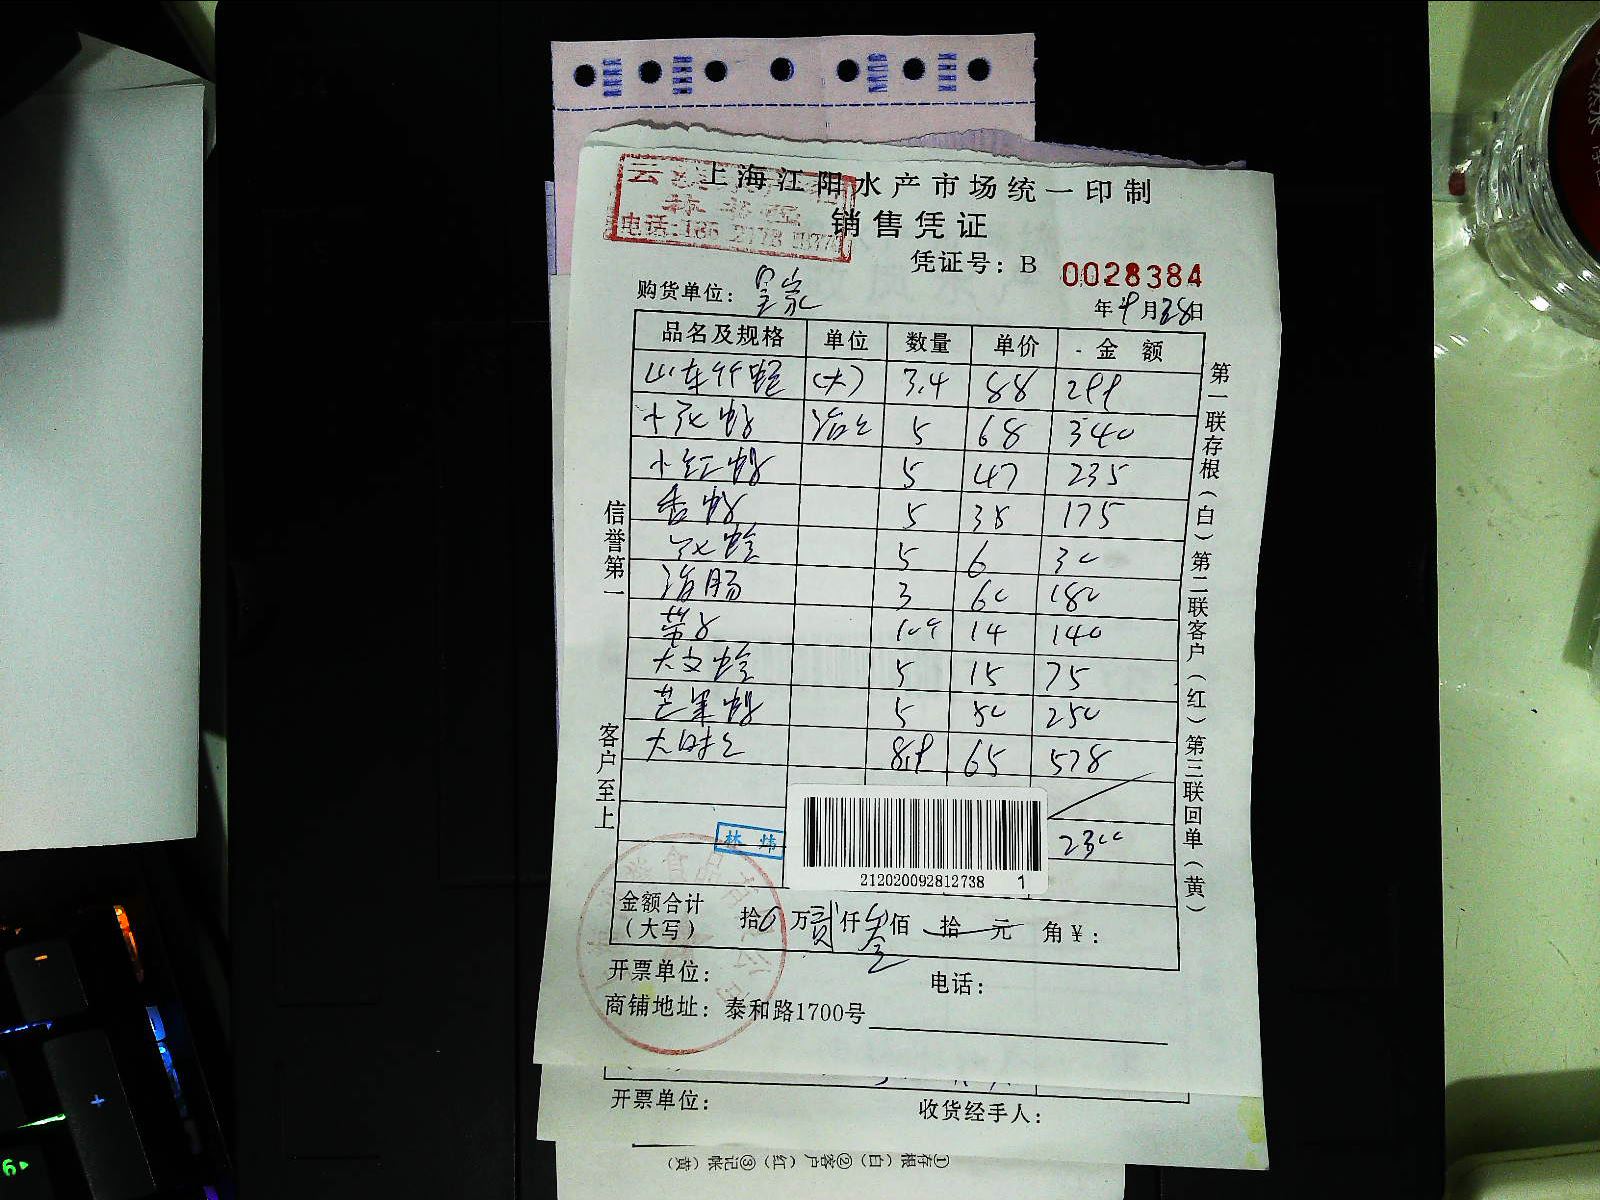 上海江阳水产市场统一印制
销售凭证
凭证号：B 0028384
购货单位：皇家
年9月28日
品名及规格 单位 数量 单价 金额
山东竹蛏 (大) 3.4 88 299
5 68 340
小红螺 5 47 235
香螺 5 35 175
花蛤 5 6 30
海肠 3 60 180
14 140
大文蛤 5 15 75
芒果螺 5 50 250
8.9 65 578
2300
林炜
212020092812738 1
金额合计（大写） 拾0万贰仟叁佰拾元角¥：
开票单位： 电话：
商铺地址：泰和路1700号
信誉第一
客户至上
第一联存根（白）第二联客户（红）第三联回单（黄）
开票单位： 收货经手人：
①存根（白）②客户（红）③记帐（黄）